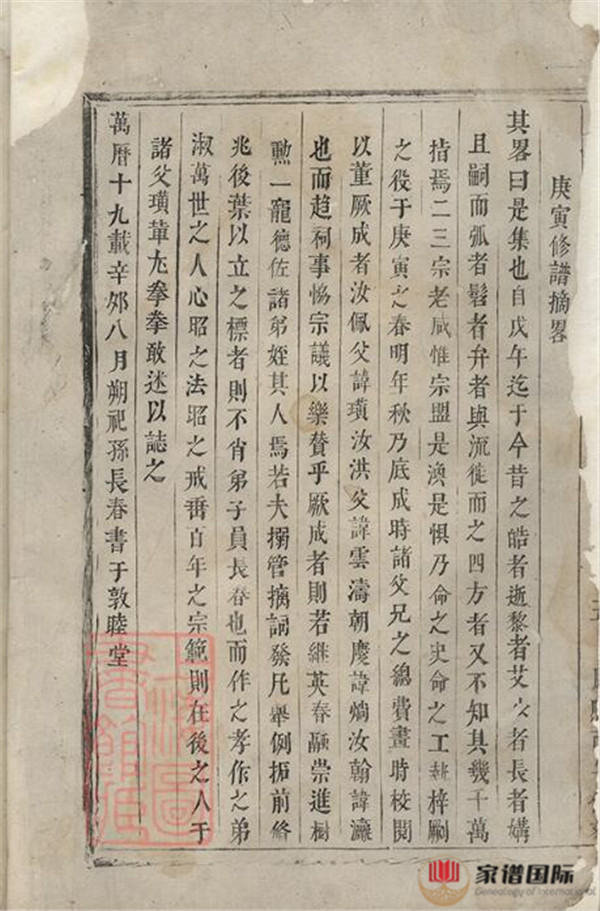 庚寅修譜摘畧
其畧曰是集也自戊午迄于今昔之皓者逝黎者艾少者長者媾
且嗣而弧者髫者弁者與流徙而之四方者又不知其幾千萬
指焉二三宗老咸惟宗盟是渙是懼乃命之史命之工耕梓劂
之役于庚寅之春明年秋乃底成時諸父兄之緫費畫時校閱
以董厥成者汝佩父諱璜汝洪父諱雲濤朝慶諱熵汝翰諱瀛
也而趋祠事恊宗議以樂賛乎厥成者則若継英春融崇進樹
勲一寵德佐諸弟姪其人焉若夫搦管摛詞發凡舉例振前脩
兆後葉以立之標者則不肖弟子員長春也而作之孝作之弟
淑萬世之人心昭之法昭之戒垂百年之宗範則在後之人于
諸父璜軰尢拳拳敢述以誌之
萬曆十九載辛夘八月朔祀孫長春書于敦睦堂
家谱国际
Genealogy of International